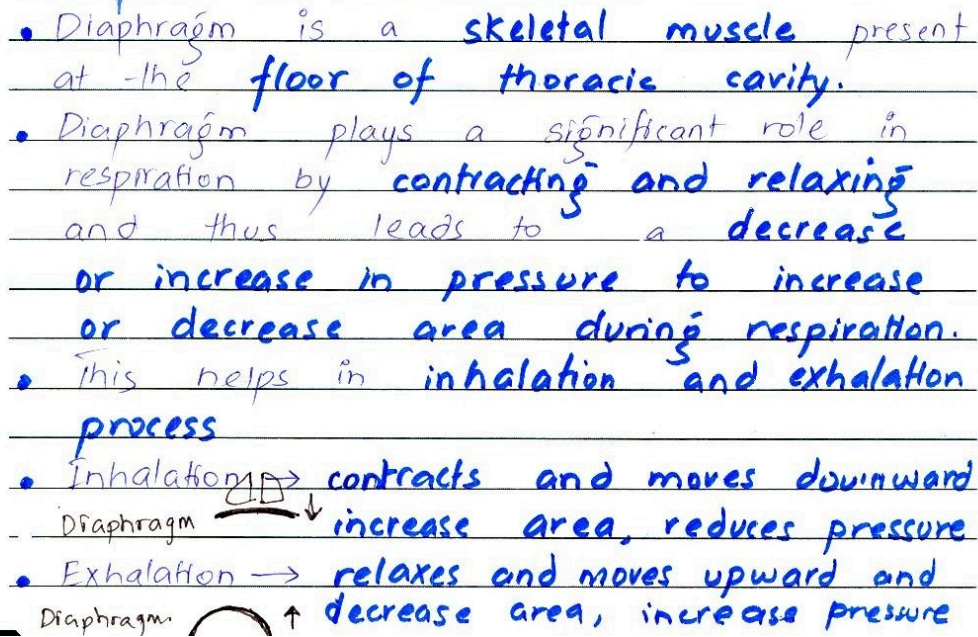 • Diaphragm is a skeletal muscle present
at the floor of thoracic cavity.
• Diaphragm plays a significant role in
respiration by contracting and relaxing
and thus leads to a decrease
or increase in pressure to increase
or decrease area during respiration.
• This helps in inhalation and exhalation
process
• Inhalation → contracts and moves downward
Diaphragm ↓ increase area, reduces pressure
• Exhalation → relaxes and moves upward and
Diaphragm ↑ decrease area, increase pressure